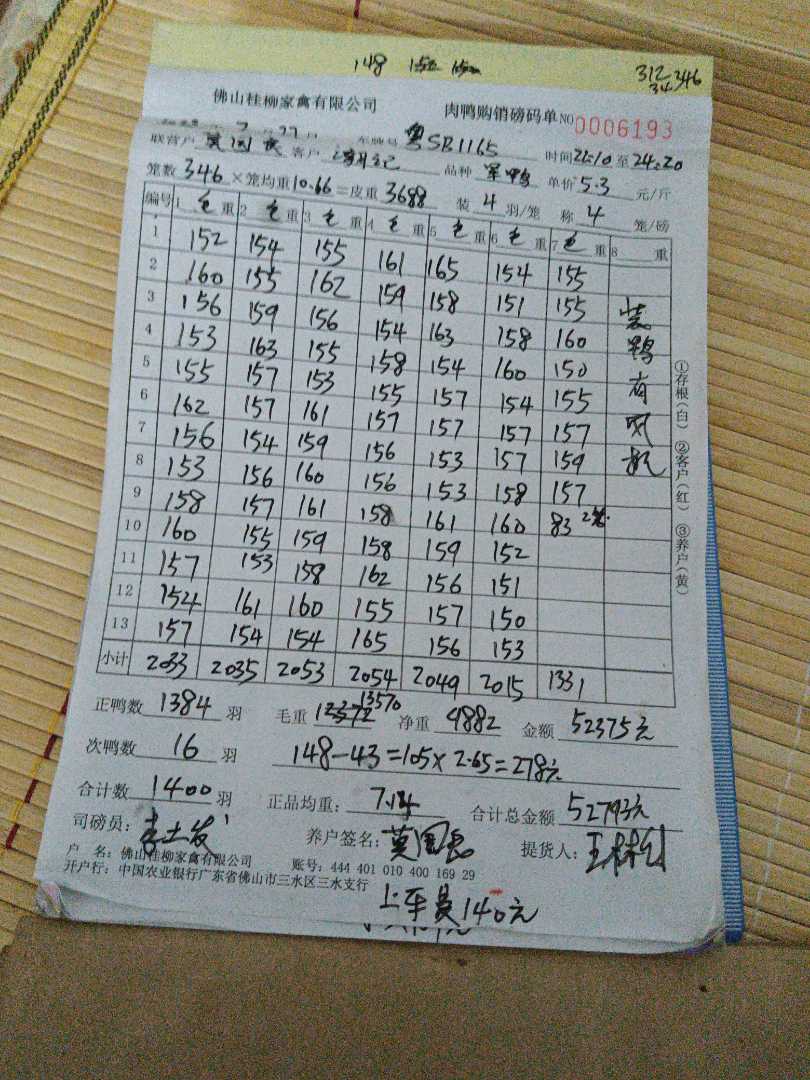 148 152 150
312 346
34
佛山桂柳家禽有限公司 肉鸭购销磅码单 NO 0006193
联营户 莫国长 客户 车牌号 粤SR1165 时间 22:10 至 24:20
笼数 346 ×笼均重 10.66 =皮重 3688 品种 军鸭 单价 5.3 元/斤
装 4 羽/笼 称 4 笼/磅
编号 1 毛重 2 毛重 3 毛重 4 毛重 5 毛重 6 毛重 7 毛重 8 重
1 152 154 155 161 165 154 155
2 160 155 162 159 158 151 155
3 156 159 156 154 163 158 160
4 153 163 155 158 154 160 150
5 155 157 153 155 157 154 155
6 162 157 161 157 157 157 157
7 156 154 159 156 153 157 159
8 153 156 160 156 153 158 157
9 158 157 161 158 161 160 83 2笼
10 160 155 159 158 159 152
11 157 153 158 162 156 151
12 154 161 160 155 157 150
13 157 154 154 165 156 153
小计 2033 2035 2053 2054 2049 2015 1331
装鸭有风机
①存根(白) ②客户(红) ③养户(黄)
正鸭数 1384 羽 毛重 13570 净重 9882 金额 52375元
次鸭数 16 羽 148-43=105×2.65=278元
合计数 1400 羽 正品均重: 7.14 合计总金额 52793元
司磅员: 养户签名: 莫国长 提货人:
户 名: 佛山桂柳家禽有限公司 账号: 444 401 010 400 169 29
开户行: 中国农业银行广东省佛山市三水区三水支行
上车费140元